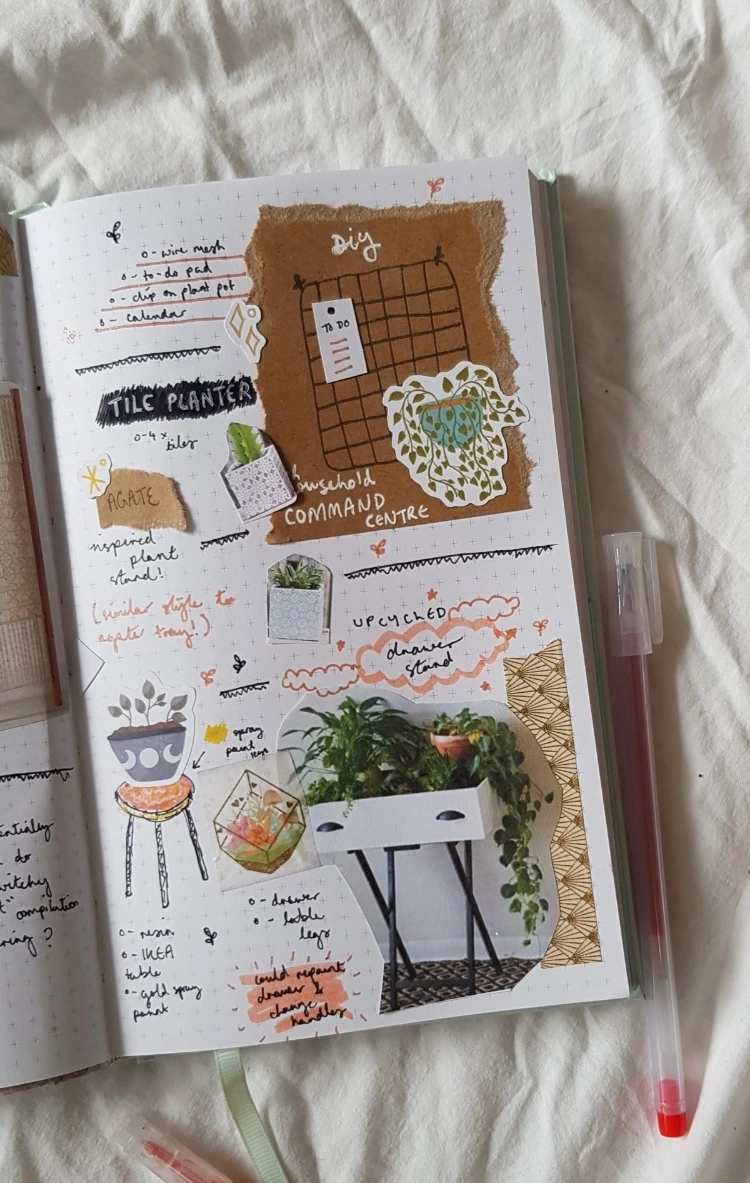 o- wire mesh
o- to-do pad
o- clip on plant pot
o- calendar
Diy
TO DO
household
COMMAND
CENTRE
TILE PLANTER
o- 4 x
tiles
AGATE
inspired
plant
stand!
(similar style to
agate tray!)
UPCYCLED
drawer
stand
spray
paint legs
o- resin
o- IKEA
table
o- gold spray
paint
o- drawer
o- table
legs
could repaint
drawer &
change
handles
do
witchy
compilation
?